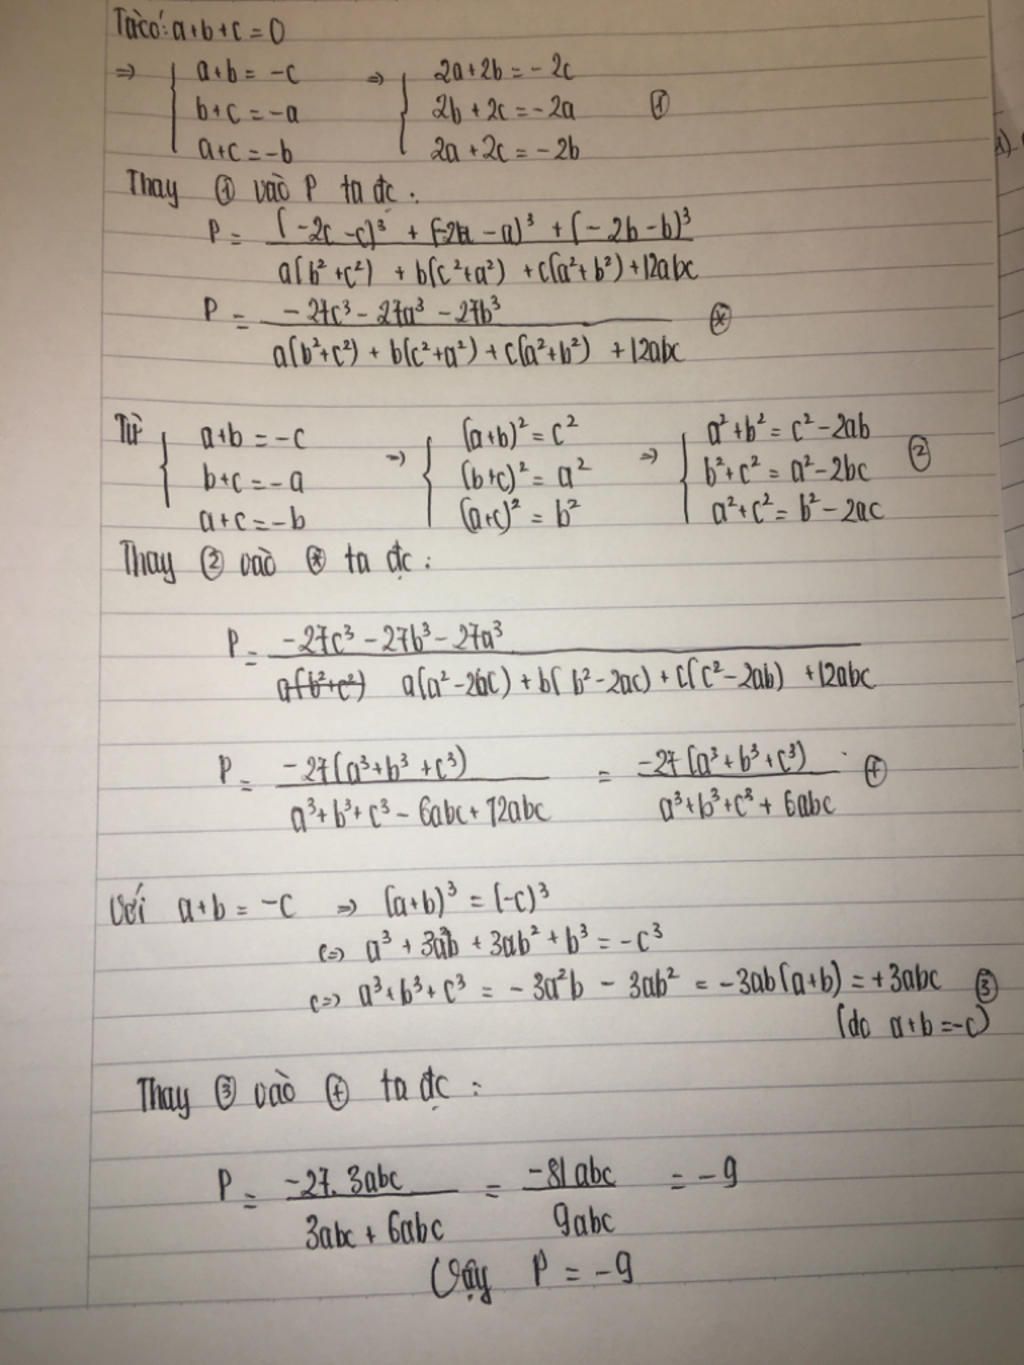 Ta có: a+b+c=0
=> { a+b = -c => { 2a+2b = -2c
b+c = -a 2b+2c = -2a ①
a+c = -b 2a+2c = -2b
Thay ① vào P ta đc:
P = (-2c-c)³ + (-2a-a)³ + (-2b-b)³
a(b²+c²) + b(c²+a²) + c(a²+b²) + 12abc
P = -27c³ - 27a³ - 27b³ ⊛
a(b²+c²) + b(c²+a²) + c(a²+b²) + 12abc
Từ { a+b = -c => { (a+b)² = c² => { a²+b² = c²-2ab
b+c = -a (b+c)² = a² b²+c² = a²-2bc ②
a+c = -b (a+c)² = b² a²+c² = b²-2ac
Thay ② vào ⊛ ta đc:
P = -27c³ - 27b³ - 27a³
a(b²+c²) a(a²-2bc) + b(b²-2ac) + c(c²-2ab) + 12abc
P = -27(a³+b³+c³) = -27(a³+b³+c³) ⊕
a³+b³+c³ - 6abc + 12abc a³+b³+c³ + 6abc
Với a+b = -c => (a+b)³ = (-c)³
<=> a³ + 3a²b + 3ab² + b³ = -c³
<=> a³+b³+c³ = -3a²b - 3ab² = -3ab(a+b) = +3abc ③
(do a+b=-c)
Thay ③ vào ⊕ ta đc:
P = -27.3abc = -81abc = -9
3abc + 6abc 9abc
Vậy P = -9